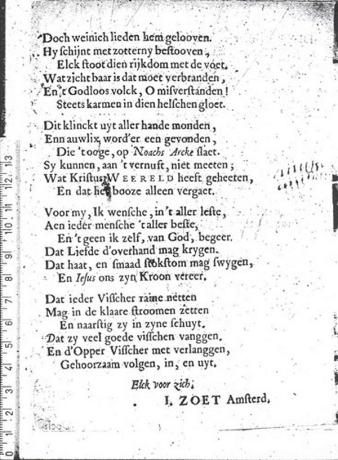 Doch weinich lieden hem gelooven.
Hy schijnt met zotterny bestooven,
Elck stoot dien rijkdom met de voet.
Wat zichtbaar is dat moet verbranden,
En 't Godloos volck, O misverstanden!
Steets karmen in dien helschen gloet.
Dit klinckt uyt aller hande monden,
Enn auwlix word'er een gevonden,
Die 't ooge, op Noachs Arcke slaet.
Sy kunnen, aan 't vernuft, niet meeten;
Wat Kristus WEERELD heeft geheeten,
En dat het booze alleen vergaet.
Voor my, Ik wensche, in 't aller leste,
Aen ieder mensche 't aller beste,
En 't geen ik zelf, van God, begeer.
Dat Liefde d'overhand mag krygen.
Dat haat, en smaad stokstom mag swygen,
En Iesus ons zyn Kroon vereer.
Dat ieder Visscher raine netten
Mag in de klaare stroomen zetten
En naarstig zy in zyne schuyt.
Dat zy veel goede visschen vanggen.
En d'Opper Visscher met verlanggen,
Gehoorzaam volgen, in, en uyt.
Elck voor zich.
I. ZOET Amsterd.